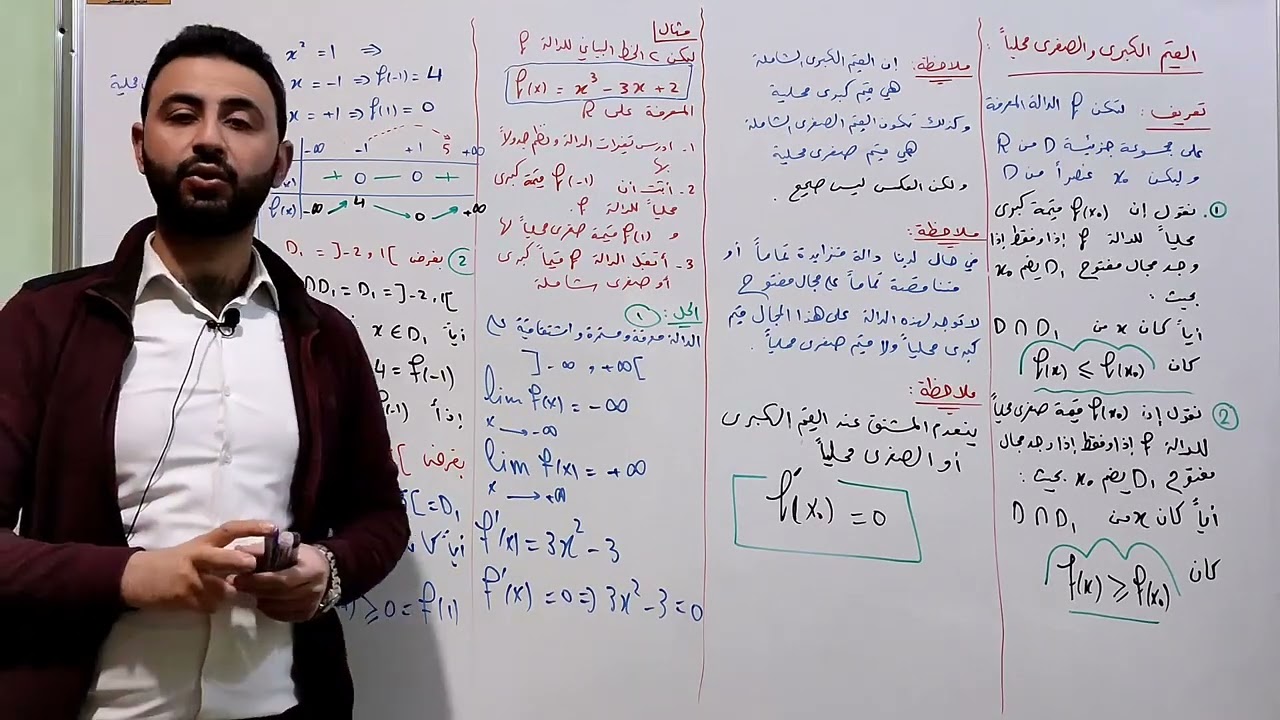 القيم الكبرى والصغرى محلياً :
تعريف : لتكن f الدالة المعرفة
على مجموعة جزئية D من R
وليكن x₀ عنصراً من D
① . نقول إن f(x₀) قيمة كبرى
محلياً للدالة f إذا وفقط إذا
وجد مجال مفتوح D₁ يضم x₀
بحيث :
أياً كان x من D∩D₁
كان f(x) ≤ f(x₀)
② نقول إن f(x₀) قيمة صغرى محلياً
للدالة f إذا وفقط إذا وجد مجال
مفتوح D₁ يضم x₀ بحيث :
أياً كان x من D∩D₁
كان f(x) ≥ f(x₀)
ملاحظة : إن القيم الكبرى الشاملة
هي قيم كبرى محلية
وكذلك تكون القيم الصغرى الشاملة
هي قيم صغرى محلية
ولكن العكس ليس صحيح .
ملاحظة :
في حال لدينا دالة متزايدة تماماً أو
متناقصة تماماً على مجال مفتوح
لا توجد لهذه الدالة على هذا المجال قيم
كبرى محلياً ولا قيم صغرى محلياً .
ملاحظة :
ينعدم المشتق عند القيم الكبرى
أو الصغرى محلياً
f'(x₀) = 0
مثال
ليكن C الخط البياني للدالة f
f(x) = x³ - 3x + 2
المعرفة على R
1. ادرس تغيرات الدالة ونظم جدولاً
بها
2- أثبت أن f(-1) قيمة كبرى
محلياً للدالة f.
و f(1) قيمة صغرى محلياً لها
3- أتقبل الدالة f قيماً كبرى
أو صغرى شاملة
الحل : ①
الدالة معرفة ومستمرة واشتقاقية على
]-∞ , +∞[
lim f(x) = -∞
x → -∞
lim f(x) = +∞
x → +∞
f'(x) = 3x² - 3
f'(x) = 0 ⇒ 3x² - 3 = 0
x² = 1 ⇒
x = -1 ⇒ f(-1) = 4
x = +1 ⇒ f(1) = 0
محلية
-∞ -1 +1 5 +∞
+ 0 - 0 +
f(x) -∞ 4 0 +∞
② بفرض D₁ = ]-2 , 1[
∩D₁ = D₁ = ]-2 , 1[
أياً x ∈ D₁
4 = f(-1)
إذاً (-1)
بفرض ]
D₁ = ]
أياً كا
≥ 0 = f(1)